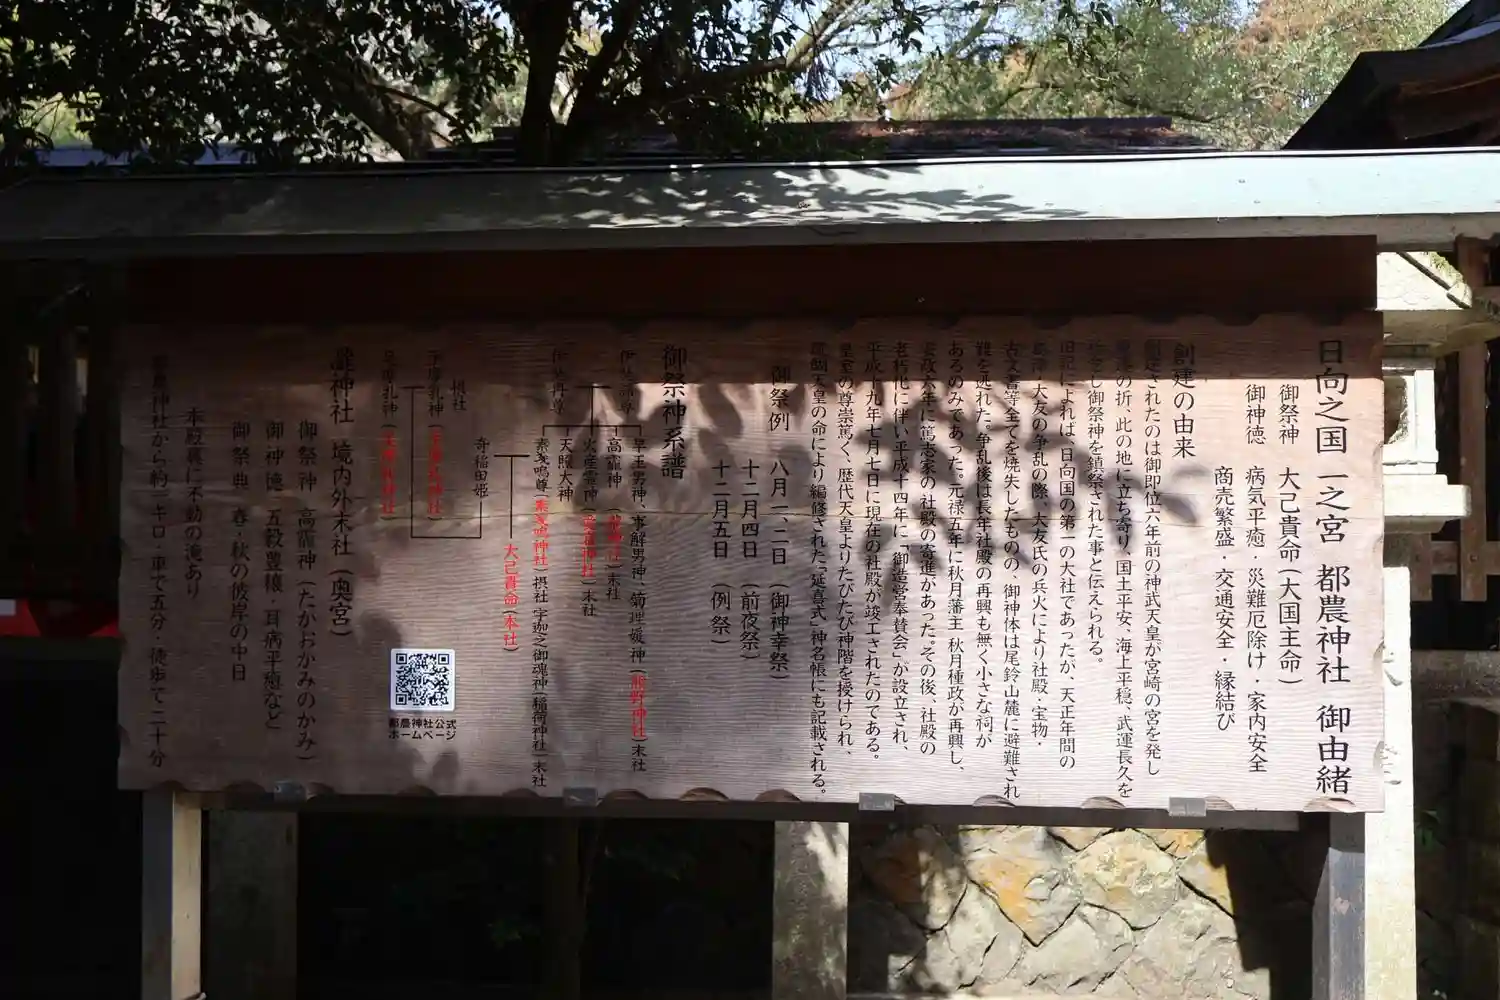 日向之国 一之宮 都農神社 御由緒
御祭神 大己貴命(大国主命)
御神徳 病気平癒・災難厄除け・家内安全
商売繁盛・交通安全・縁結び
創建の由来
創建されたのは御即位六年前の神武天皇が宮崎の宮を発し
の折、此の地に立ち寄り、国土平安、海上平穏、武運長久を
し御祭神を鎮祭された事と伝えられる。
旧記によれば、日向国の第一の大社であったが、天正年間の
大友の争乱の際、大友氏の兵火により社殿・宝物・
古文書等全てを焼失したものの、御神体は尾鈴山麓に避難され
難を逃れた。争乱後は長年社殿の再興も無く小さな祠が
あるのみであった。元禄五年に秋月藩主 秋月種政が再興し、
安政六年に篤志家の社殿の寄進があった。その後、社殿の
老朽化に伴い平成十四年に「御造営奉賛会」が設立され、
平成十九年七月七日に現在の社殿が竣工されたのである。
皇室の尊崇篤く、歴代天皇よりたびたび神階を授けられ、
醍醐天皇の命により編修された「延喜式」神名帳にも記載される。
御祭例 八月一、二日 (御神幸祭)
十二月四日 (前夜祭)
十二月五日 (例祭)
御祭神系譜
伊弉諾尊
伊弉冉尊
早玉男神、事解男神、菊理媛神(熊野神社)末社
高龗神 末社
火産霊神(愛宕神社)末社
天照大神
素戔嗚尊(素戔嗚神社)摂社 宇迦之御魂神(稲荷神社)末社
大己貴命(本社)
奇稲田姫
摂社
手摩乳神(手摩乳神社)
足摩乳神(足摩乳神社)
都農神社公式
ホームページ
瀧神社 境内外末社(奥宮)
御祭神 高龗神(たかおかみのかみ)
御神徳 五穀豊穣・耳病平癒など
御祭典 春・秋の彼岸の中日
本殿裏に不動の滝あり
都農神社から約一キロ・車で五分・徒歩で二十分